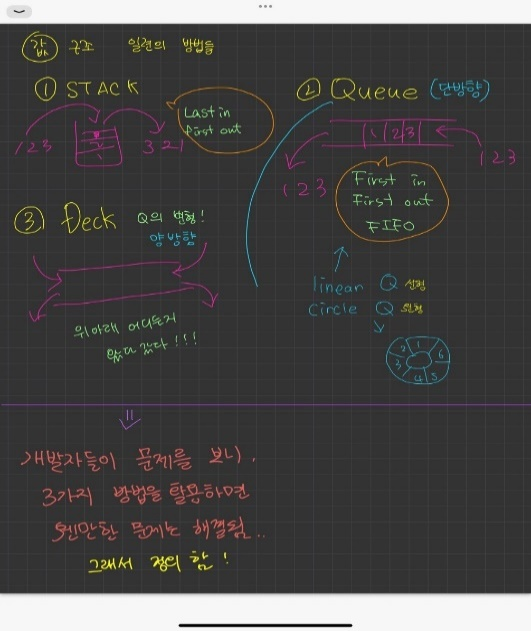 값 구조 일련의 방법들
① STACK
Last in
First out
1 2 3
3 2 1
② Queue (단방향)
1 2 3
1 2 3
1 2 3
First in
First out
FIFO
linear Q 선형
Circle Q 원형
2 1 6
3 4 5
③ Deck Q의 변형!
양방향
위아래 어디든지
왔다 갔다!!!
개발자들이 문제를 보니.
3가지 방법을 활용하면
웬만한 문제는 해결됨..
그래서 정의 함!